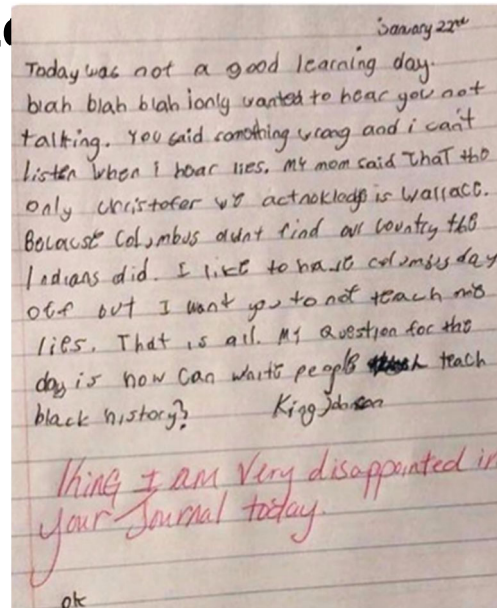 January 22nd
Today was not a good learning day.
blah blah blah i only wanted to hear you not
talking. You said something wrong and i can't
listen when I hear lies. My mom said That the
only christofer we acknoklodge is Wallace.
Because Columbus didnt find our country the
Indians did. I like to have columbus day
off but I want you to not teach me
lies. That is all. My question for the
day is how can white people teach
black history? King Johnson
King I am Very disappointed in
your Journal today.
ok